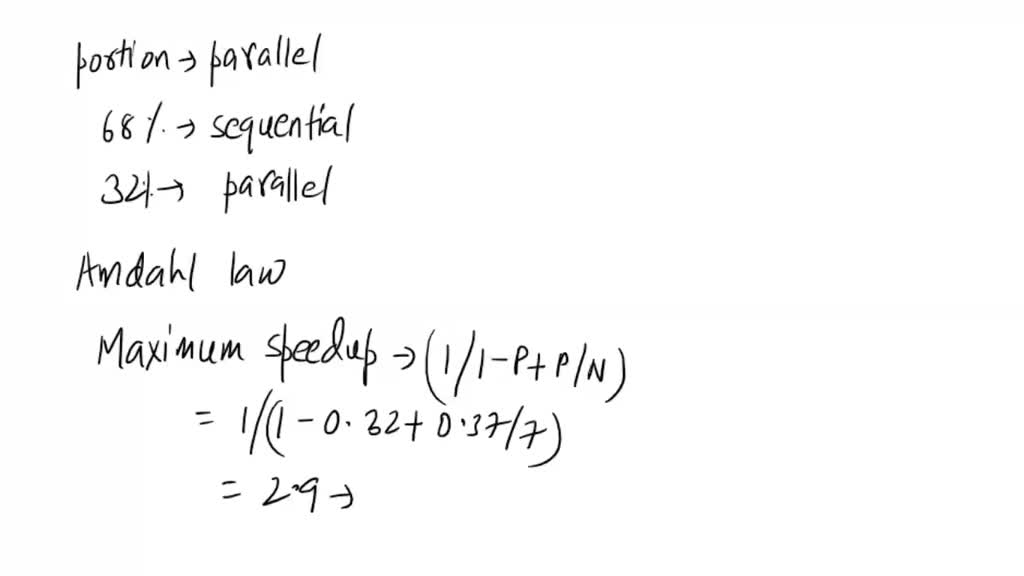 portion → parallel
68% → sequential
32% → parallel
Amdahl law
Maximum speedup → (1/1-P+P/N)
= 1/(1-0.32+0.37/7)
= 2.9 →